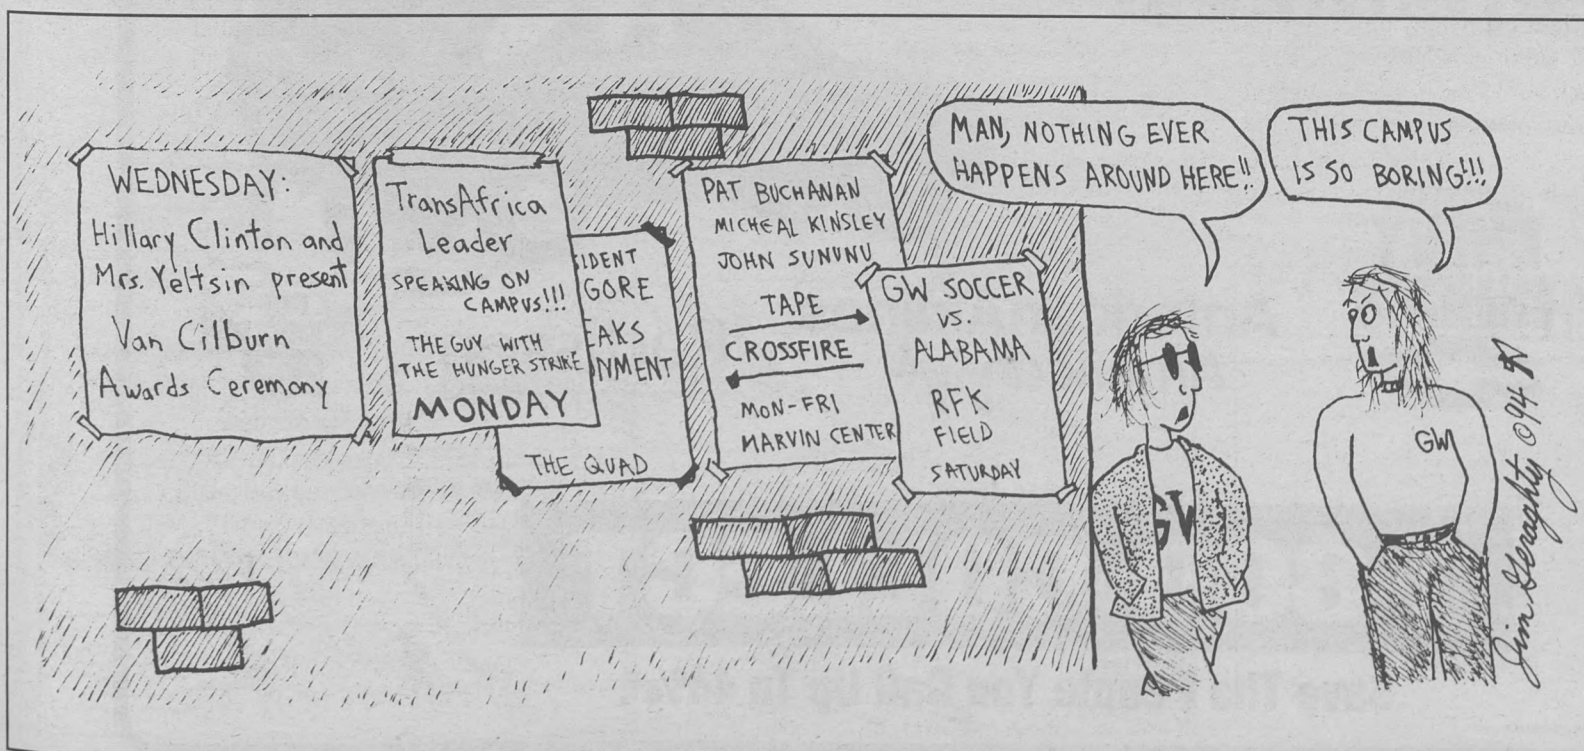 WEDNESDAY:
Hillary Clinton and
Mrs. Yeltsin present
Van Cilburn
Awards Ceremony
TransAfrica
Leader
SPEAKING ON
CAMPUS!!!
THE GUY WITH
THE HUNGER STRIKE
MONDAY
SIDENT
GORE
EAKS
ONMENT
THE QUAD
PAT BUCHANAN
MICHEAL KINSLEY
JOHN SUNUNU
TAPE
CROSSFIRE
MON-FRI
MARVIN CENTER
GW SOCCER
VS.
ALABAMA
RFK
FIELD
SATURDAY
MAN, NOTHING EVER
HAPPENS AROUND HERE!!
THIS CAMPUS
IS SO BORING!!!
GW
GW
Jim Geraghty © 94